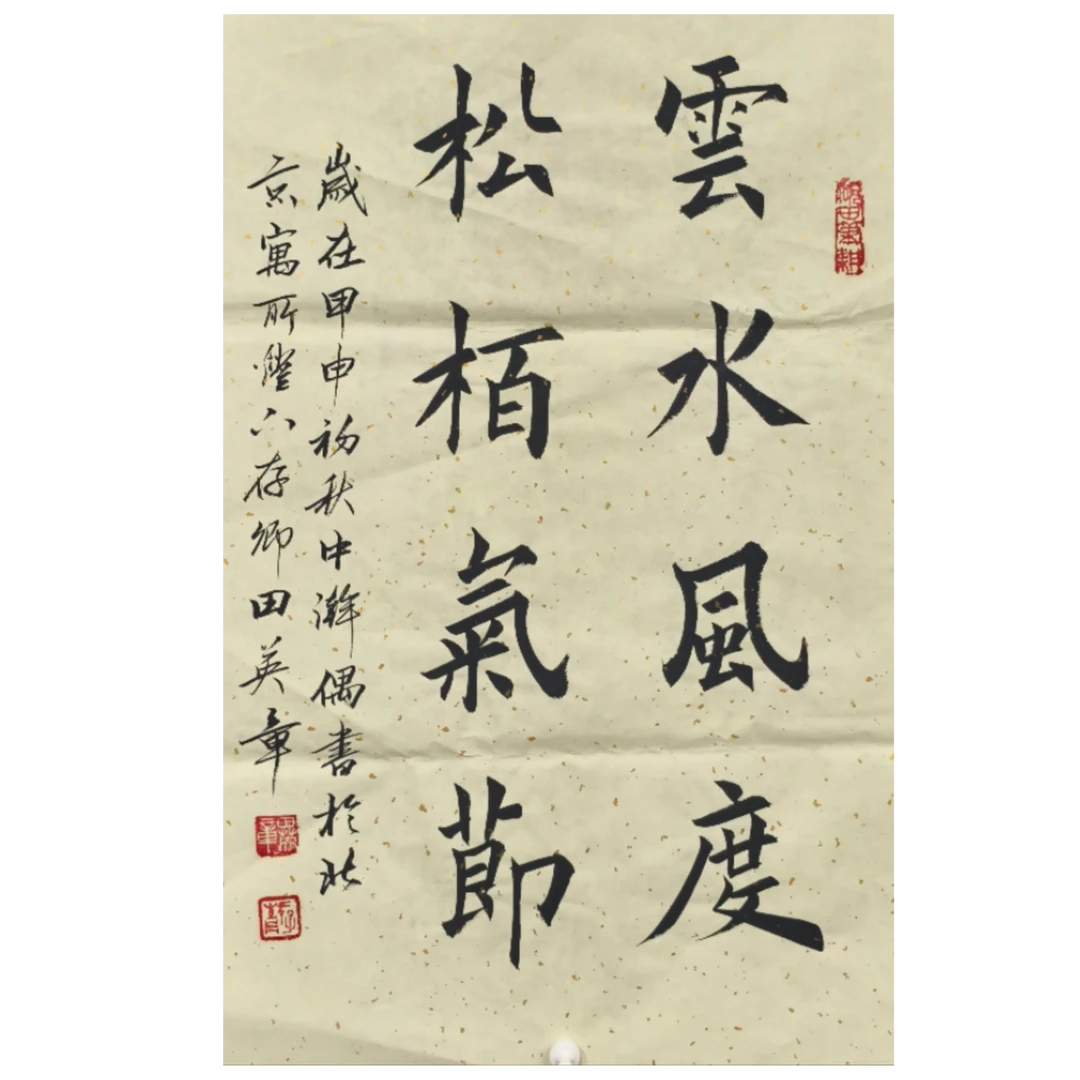 雲水風度
松栢氣節
歲在甲申初秋中澣偶書於北
京寓所 存卿田英章